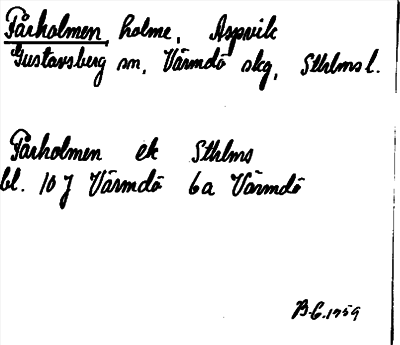 Fårholmen, holme, Aspvik
Gustavsberg sn, Värmdö skg, Sthlms l.
Fårholmen ek Sthlms
bl. 10 J Värmdö 6a Värmdö
B.G. 1959